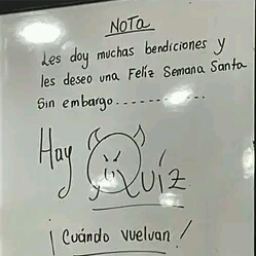 NOTA
Les doy muchas bendiciones y
les deseo una Feliz Semana Santa
Sin embargo............
Hay Quíz
¡ Cuándo vuelvan !